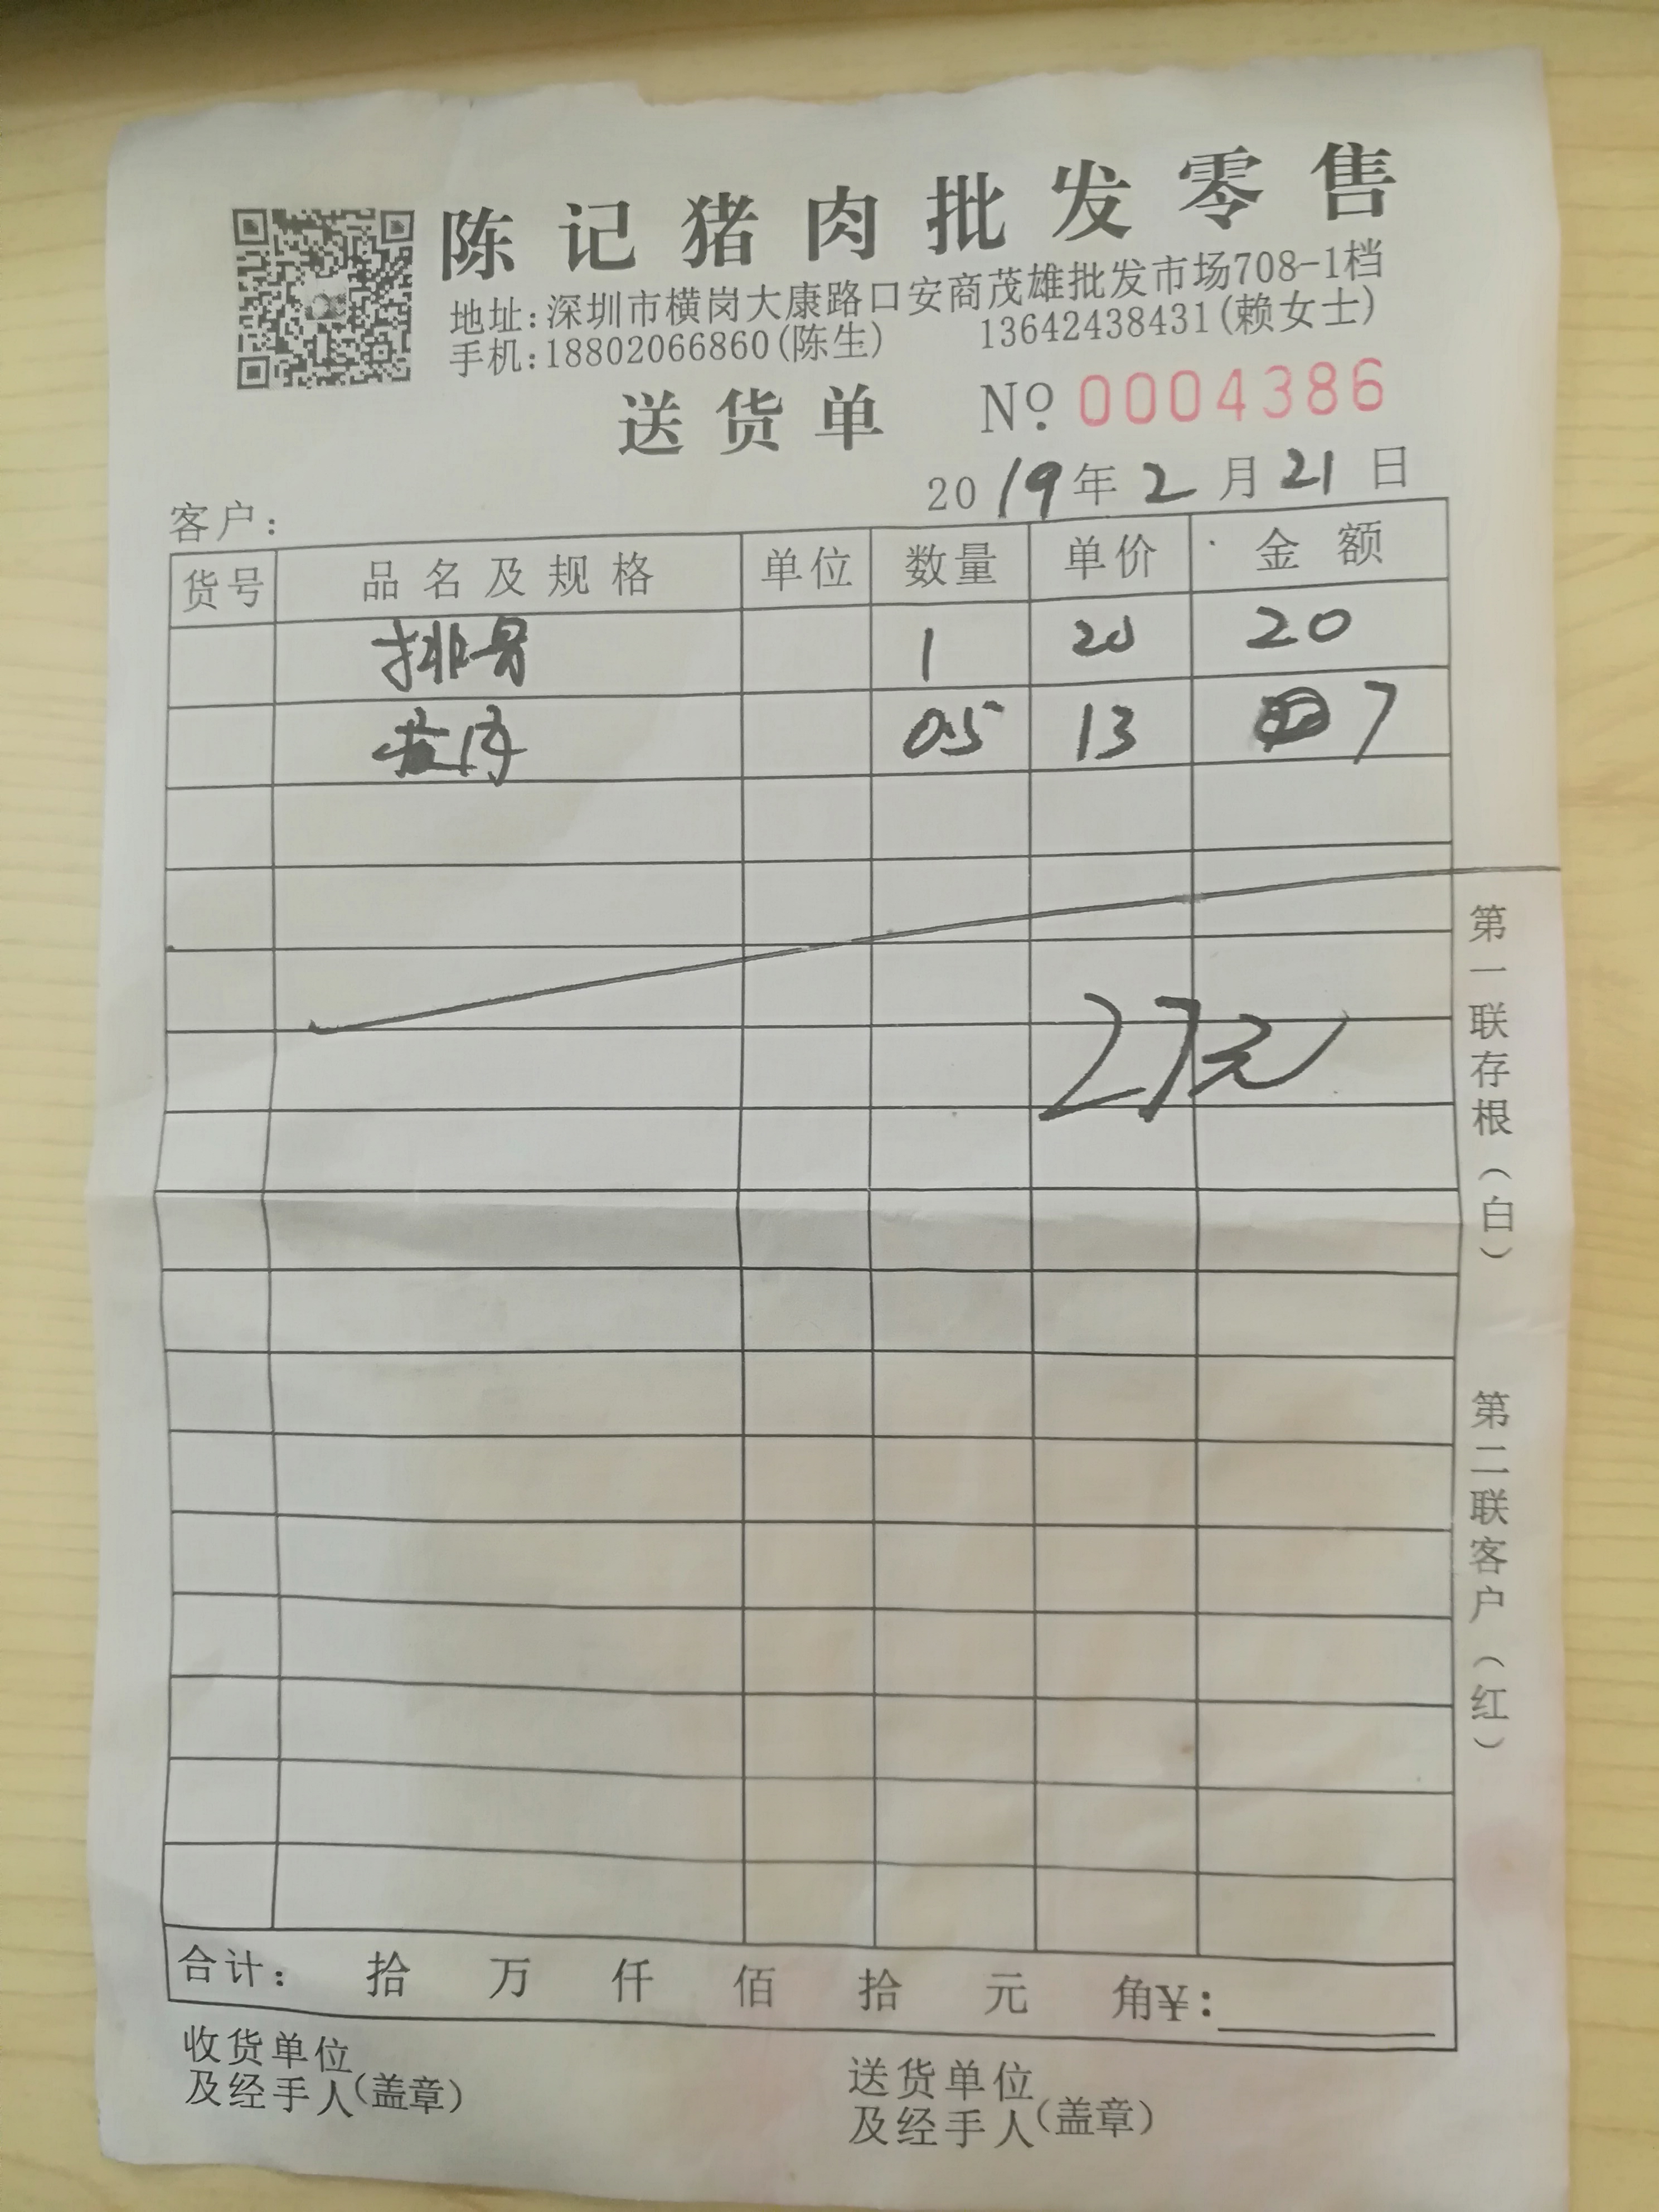 陈记猪肉批发零售
地址:深圳市横岗大康路口安商茂雄批发市场708-1档
手机:18802066860(陈生) 13642438431(赖女士)
送货单 No. 0004386
2019年2月21日
客户:
货号 品名及规格 单位 数量 单价 金额
排骨 1 20 20
0.5 13 7
27元
合计: 拾 万 仟 佰 拾 元 角¥:
收货单位
及经手人(盖章)
送货单位
及经手人(盖章)
第一联存根(白)
第二联客户(红)